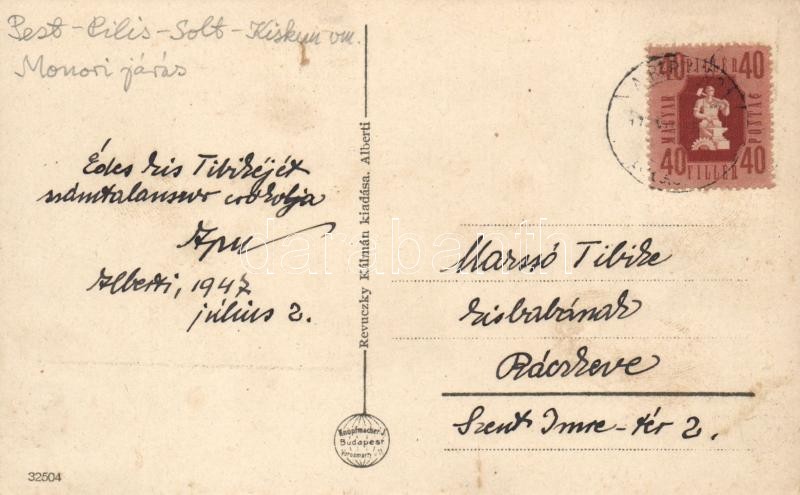 Pest-Pilis-Solt-Kiskun vm.
Monori járás
40 FILLÉR 40
MAGYAR
POSTA
40 FILLÉR 40
Édes kis Tibikéjét
számtalanszor csókolja
Apu
Alberti, 1947
július 2.
Revuczky Kálmán kiadása. Alberti.
darabanth
Marssó Tibike
kisbabának
Ráczkeve
Szent Imre-tér 2.
Knopfmacher
Budapest
32504